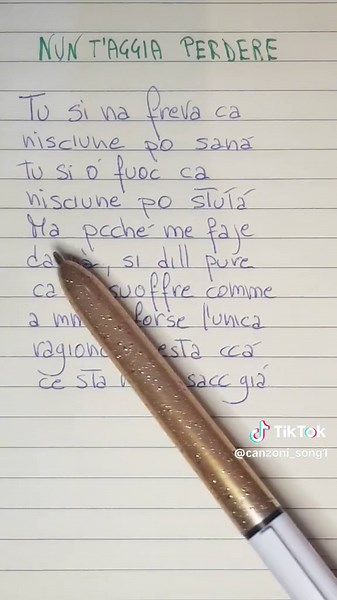 NUN T'AGGIA PERDERE
Tu si na freva ca
nisciune po sanà
tu si o' fuoc ca
nisciune po stutà
Ma pcchè me faje
, si dill pure
ca suoffre comme
a forse l'unica
esta ccà
ce sta sacc già
TikTok
@canzoni_song1